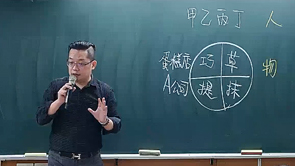 甲乙丙丁 人
蛋糕店 巧 草 物
A公司 提 抹